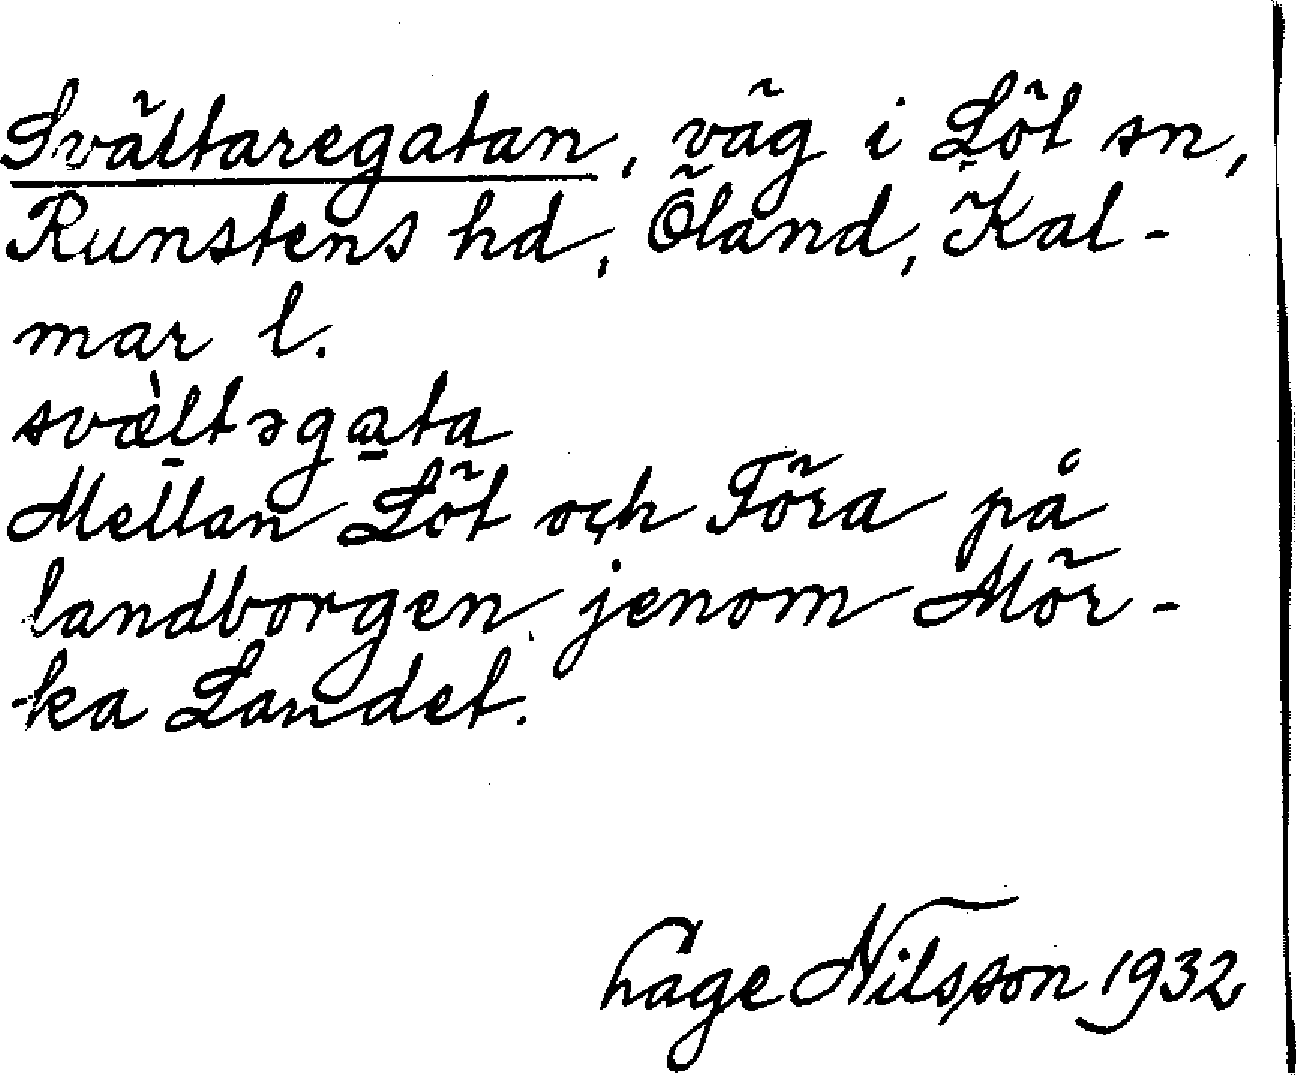 Svältaregatan, väg i Löt sn,
Runstens hd, Öland, Kal-
mar l.
svæ̀ltəgata
Mellan Löt och Föra på
landborgen jenom Mör-
ka Landet.
Hage Nilsson 1932